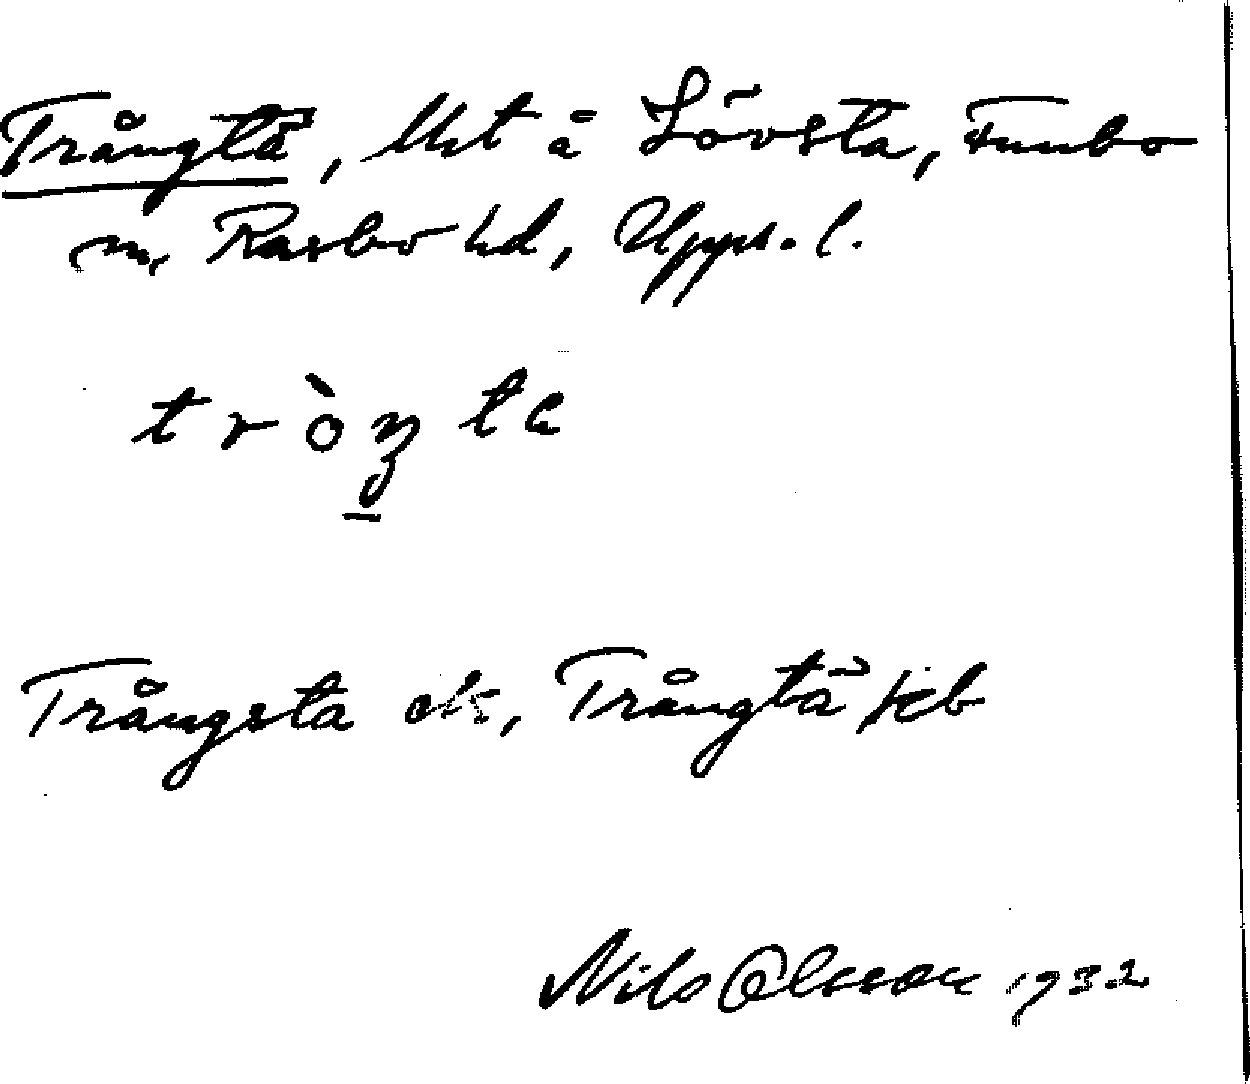 Trångtä, lht å Lövsta, Funbo
sn, Rasbo hd, Upps. l.
trò̀ŋta
Trångsta ek, Trångtä jcb
Nils Olsson 1932